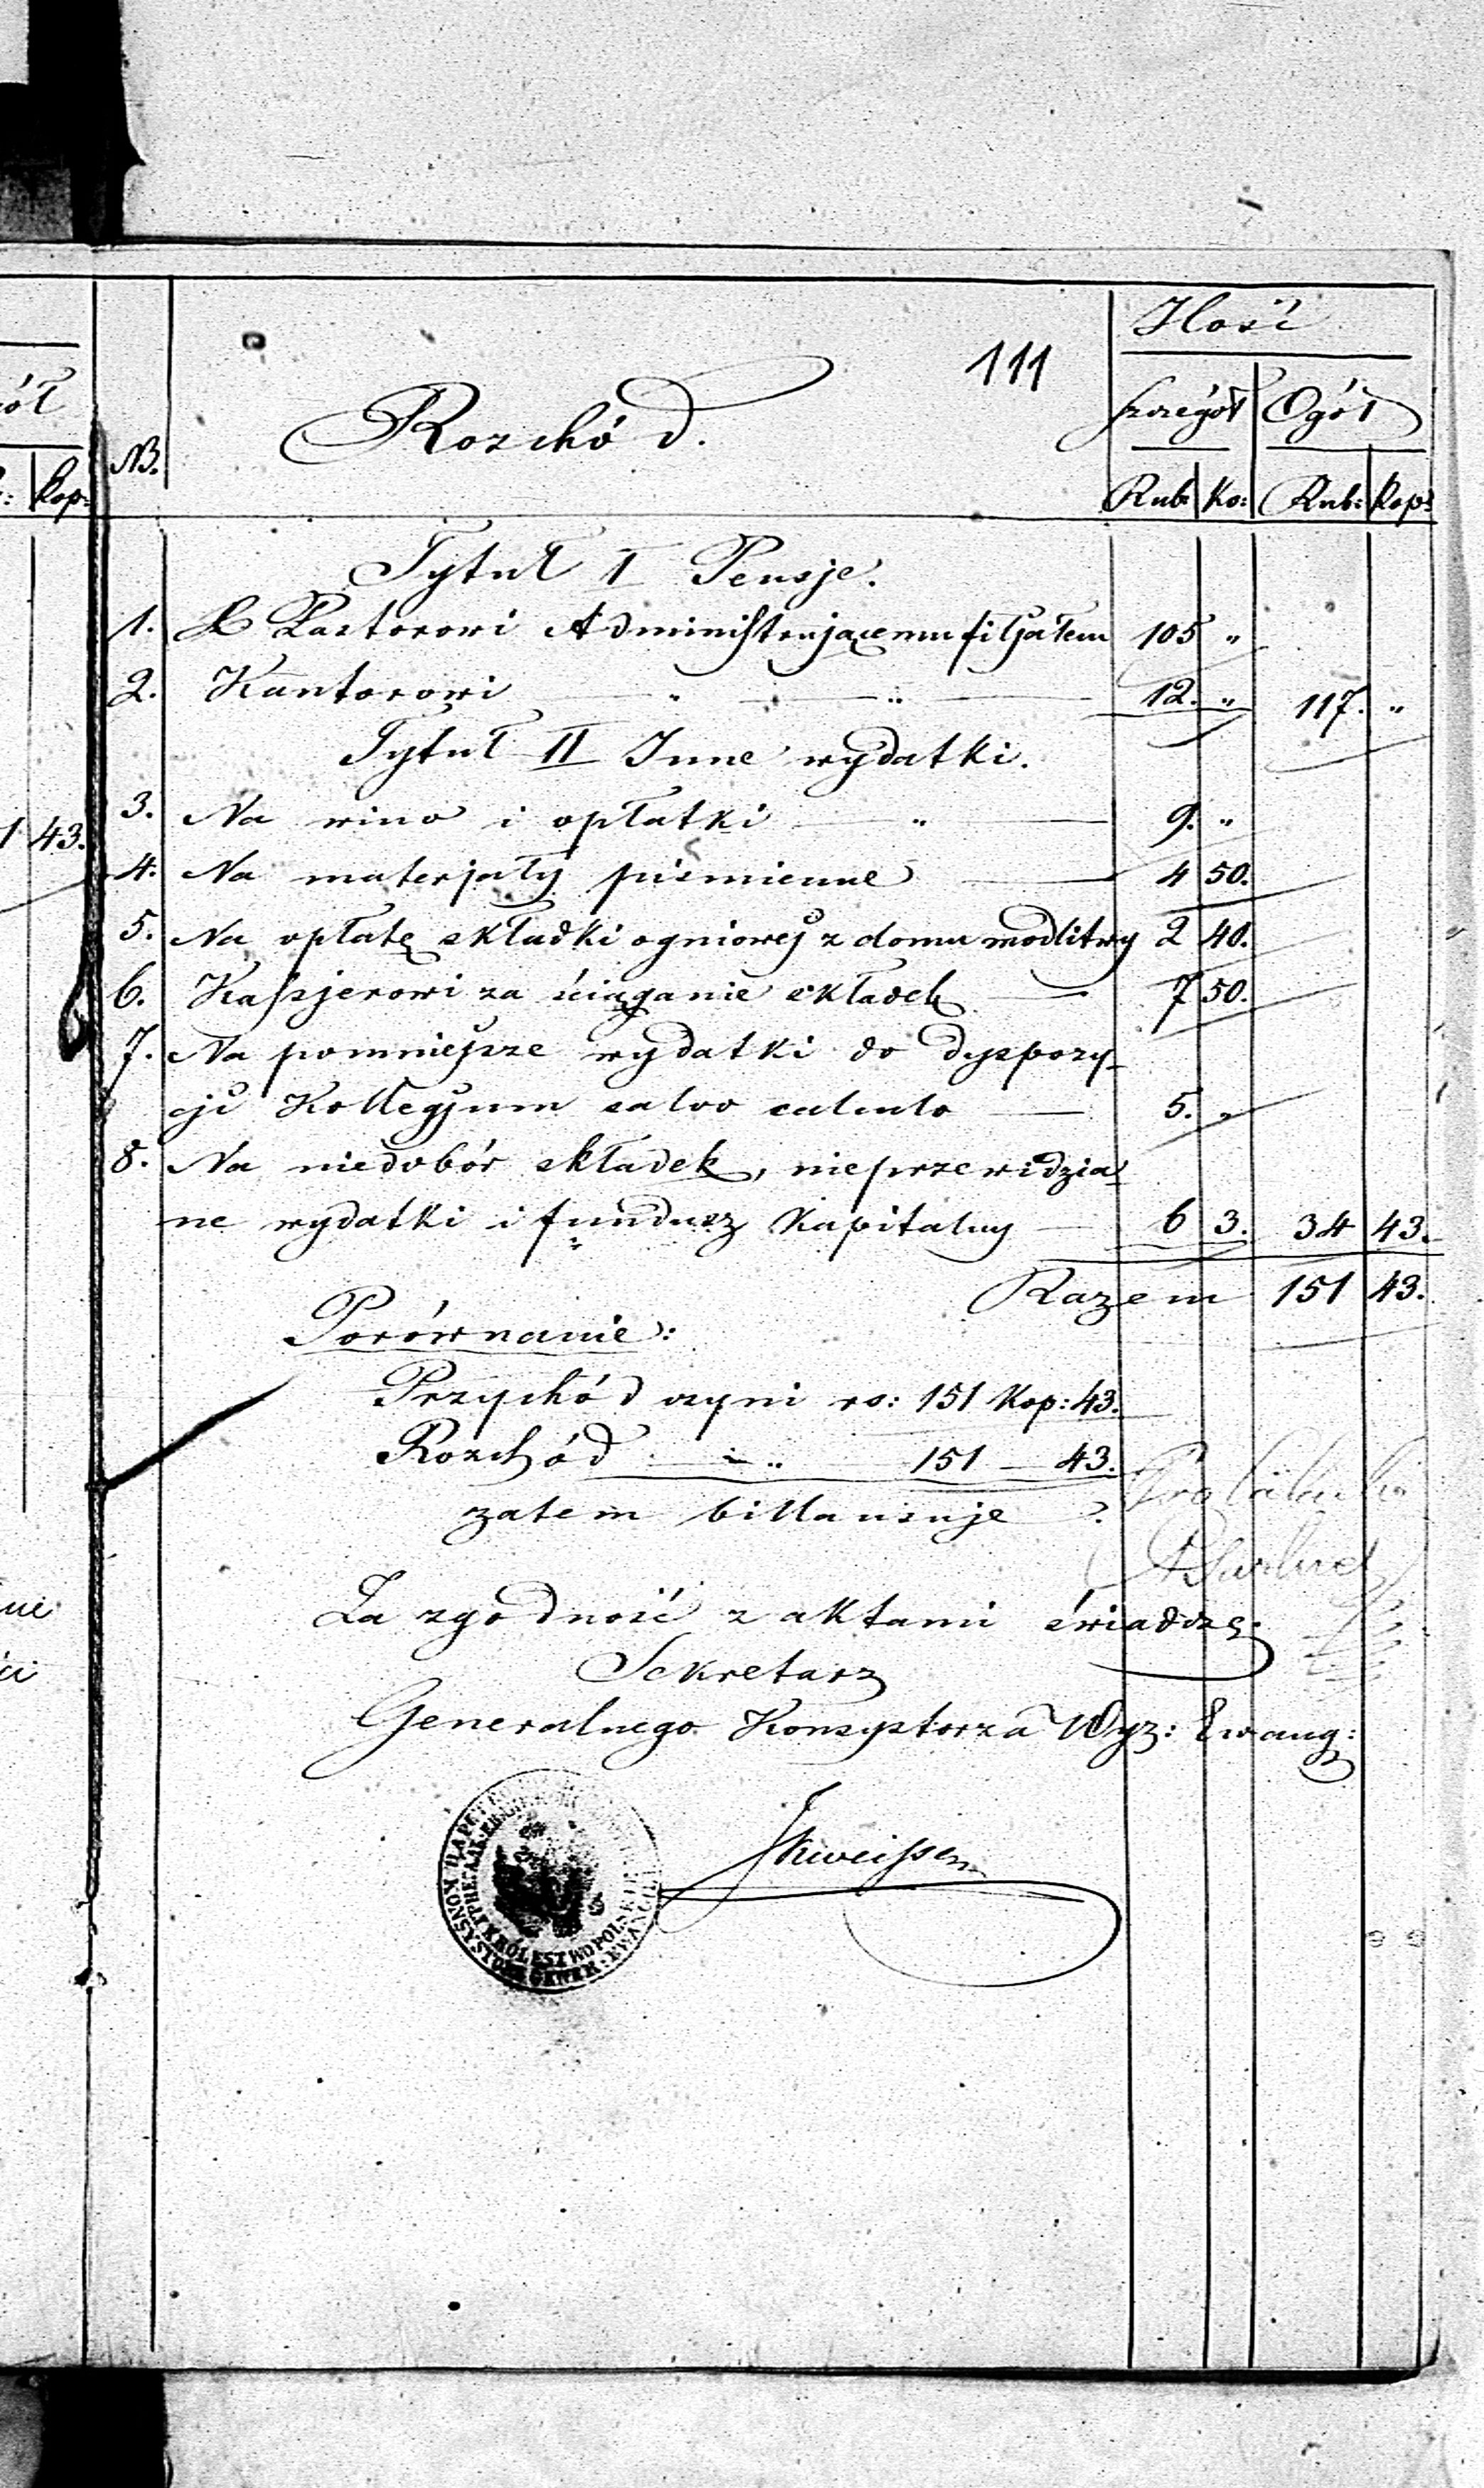 111
Ilość
ół
Rozchód.
szczegół Ogół
NB.
kop: Rub: Ko: Rub: kop:
Tytuł I Pensje.
1. Pastorowi Administrującemu filjałem 105 "
2. Kantorowi " " 12. " 117. "
Tytuł II Inne wydatki.
3. Na wino i opłatki " 9. "
1 43.
4. Na materjały piśmienne 4 50.
5. Na opłatę składki ogniowej z domu modlitwy 2 40.
6. Kassjerowi za ściąganie składek 7 50.
7. Na pomniejsze wydatki do dyspozy-
cji Kollegjum salvo calculo 5. "
8. Na niedobór składek, nieprzewidzia-
ne wydatki i fundusz Kapitalny 6 3. 34 43.
Razem 151 43.
Porównanie:
Przychód czyni rs: 151 Kop: 43.
Rozchód " " 151 — 43.
zatem billansuje
Za zgodność z aktami świadczę.
Sekretarz
Generalnego Konsystorza Wyz: Ewang:
KRÓLESTWO POLSKIE
KONSYSTORZ GENER: EWANGIEL